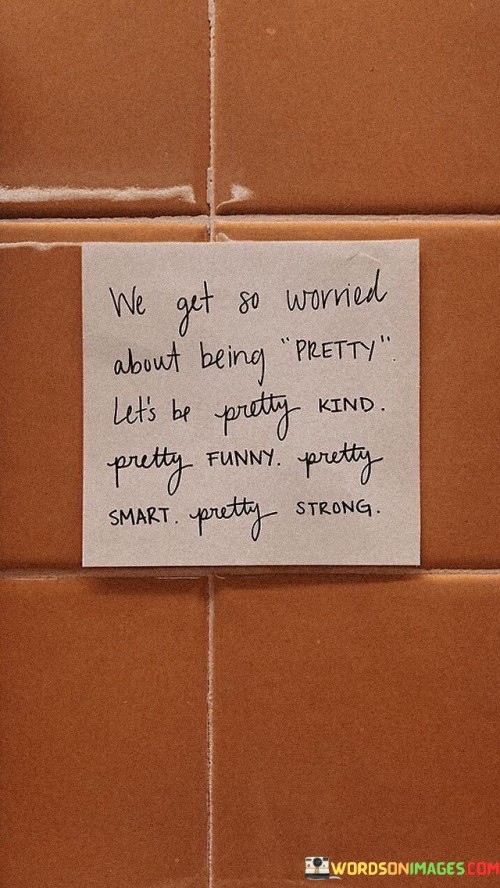 We get so worried
about being "PRETTY".
Let's be pretty KIND.
pretty FUNNY. pretty
SMART. pretty STRONG.
WORDSONIMAGES.COM